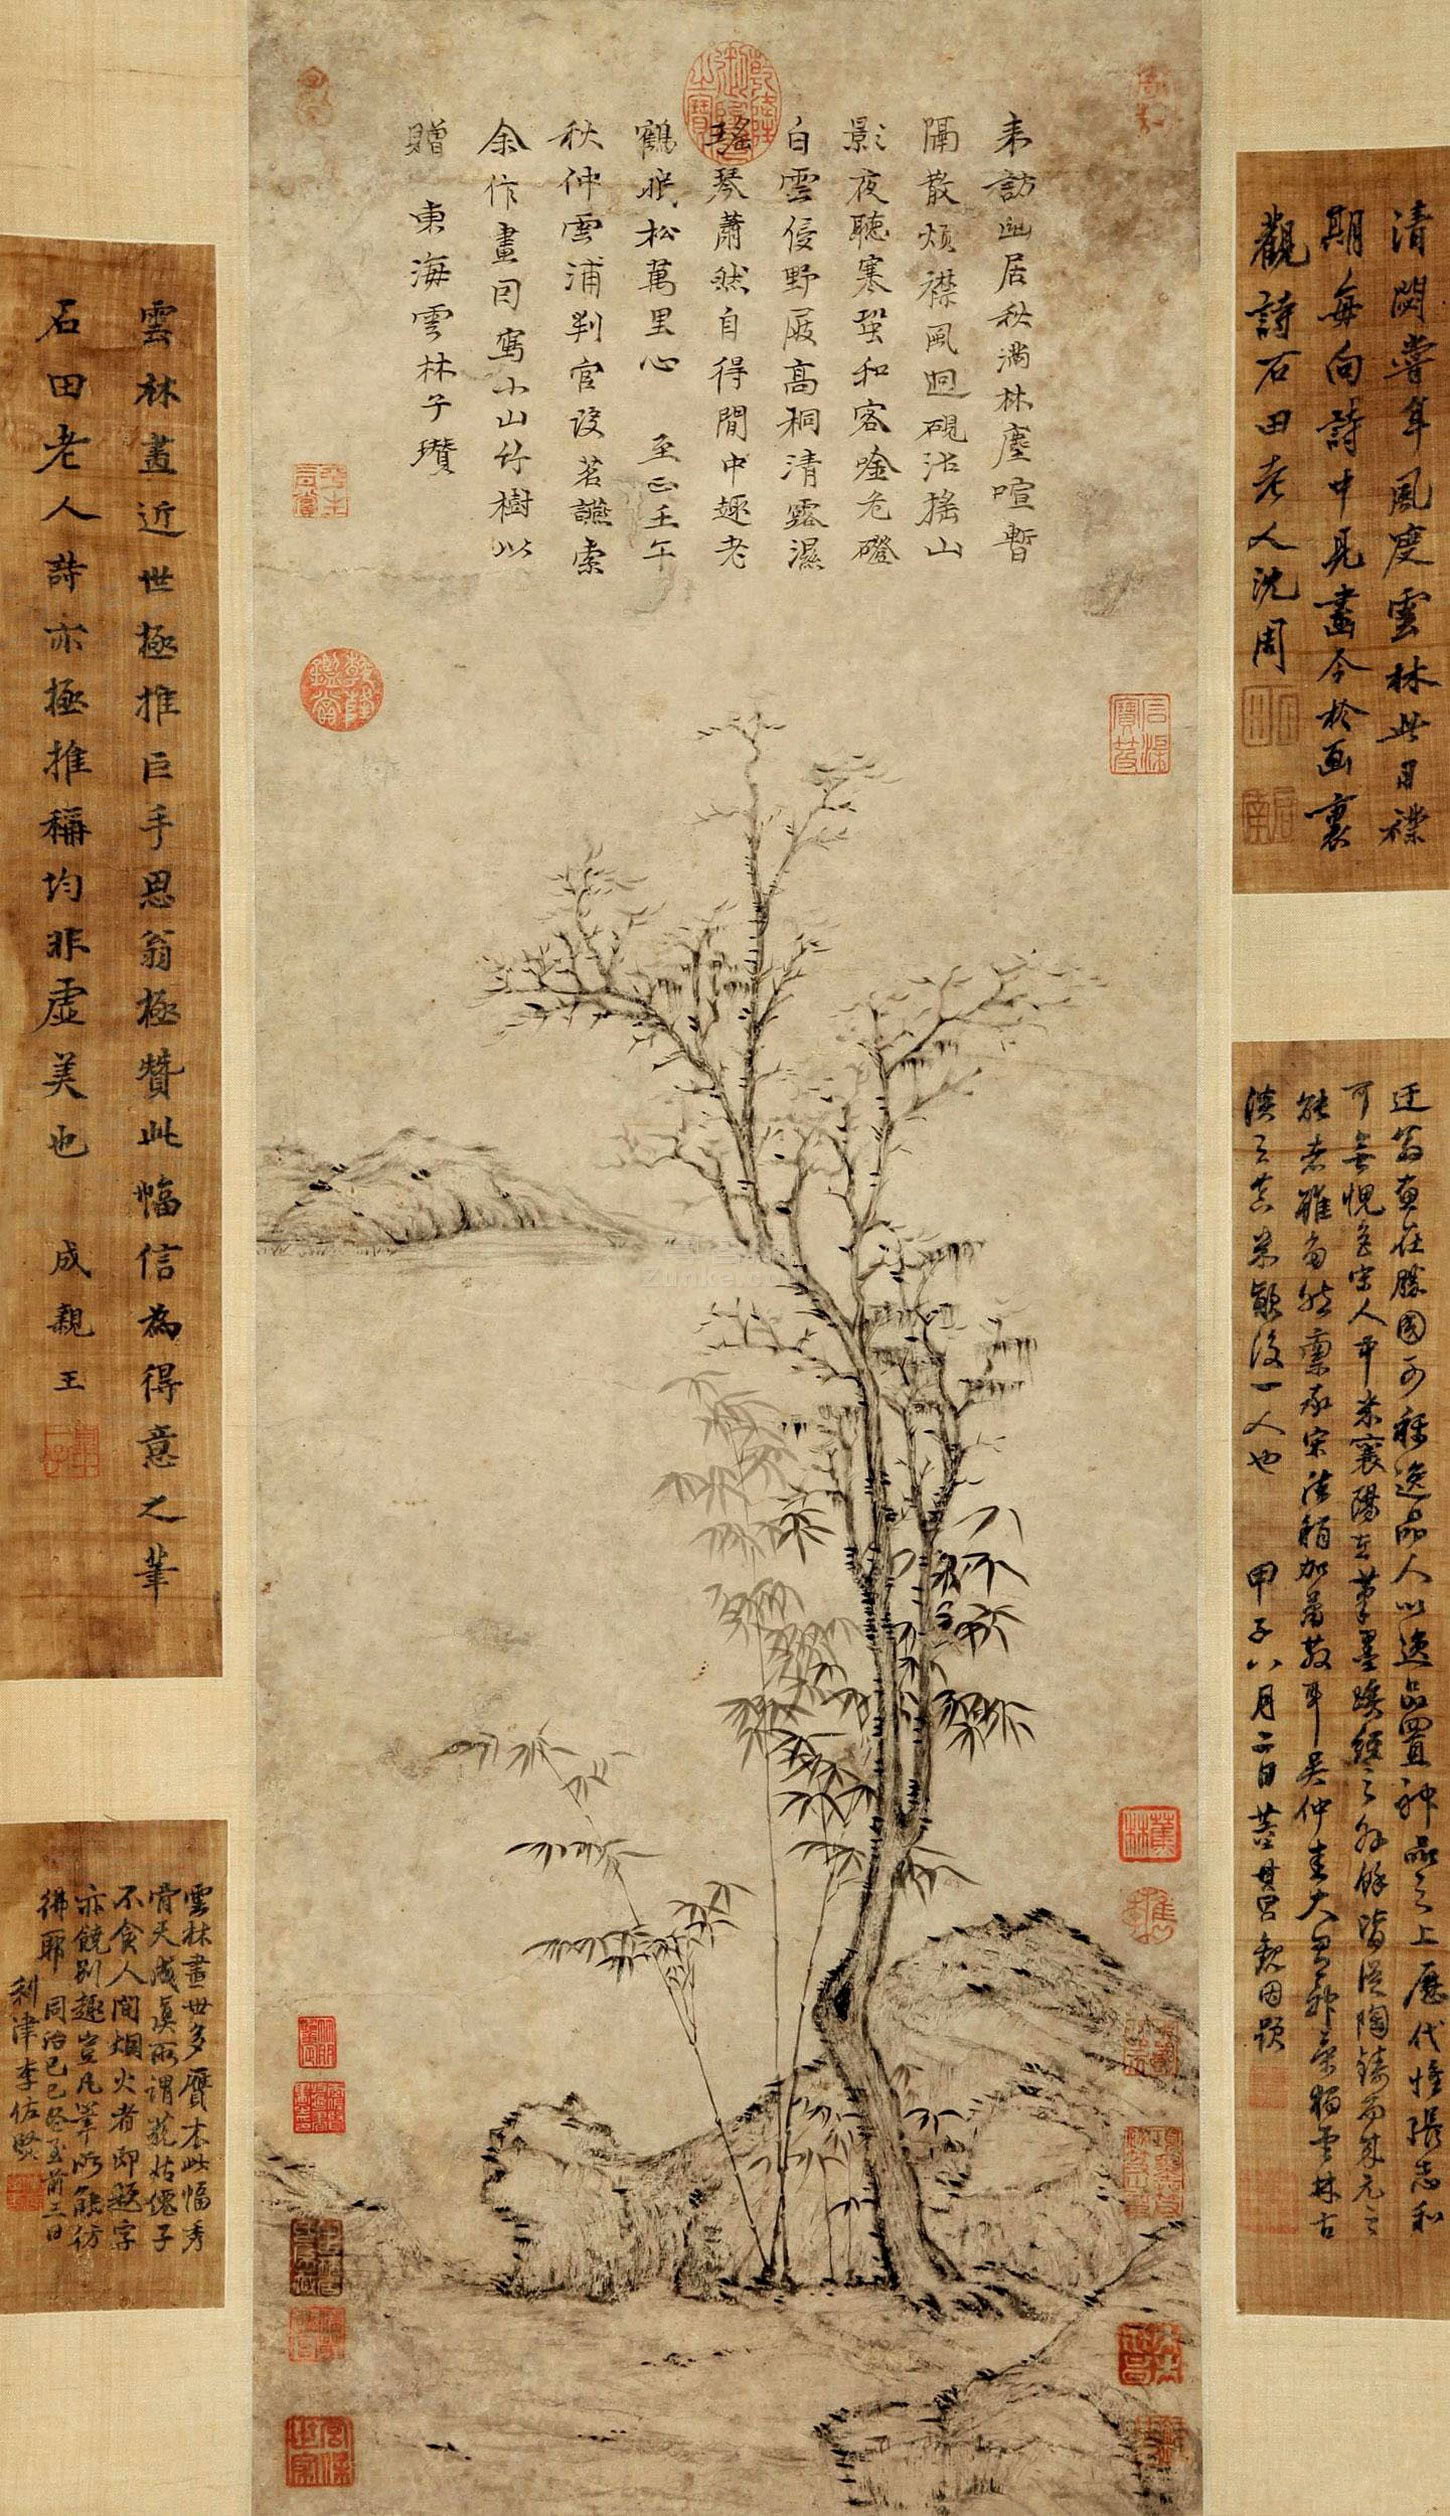 耒訪幽居秋滿林塵喧暫
隔散煩襟風迴硯沼摇山
影夜聽寒蛩和客唫危磴
白雲侵野屐高桐清露濕
瑤琴蕭然自得閒中趣老
鶴眠松萬里心 至正壬午
秋仲雲浦判官設茗讌索
余作畫因寫小山竹樹以
贈 東海雲林子瓚
清閟當年風度雲林此日襟
期每向詩中見畫今於画裏
觀詩石田老人沈周
迂翁畫在勝國可稱逸品人以逸品置神品之上歷代惟張志和
可無愧色宋人中米襄陽在筆墨蹊徑之外餘皆從陶鑄而來元之
能者雖多然稟承宋法稍加蕭散耳吳仲圭大有神氣獨雲林古
淡天真米顛後一人也 甲子八月二日董其昌觀因題
雲林畫近世極推巨手思翁極贊此幅信為得意之筆
石田老人詩亦極推稱均非虛美也 成親王
雲林畫世多贋本此幅秀
骨天成真所謂藐姑僊子
不食人間烟火者即題字
亦饒別趣豈凡筆所能彷
彿耶 同治己巳冬至前三日
利津李佐賢
乾隆御覽之寶
乾隆鑑賞
蕉林
Zunke.com